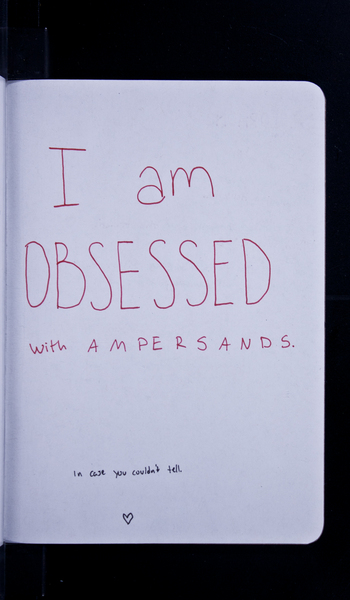 I am
OBSESSED
with AMPERSANDS.
In case you couldn't tell.
♡